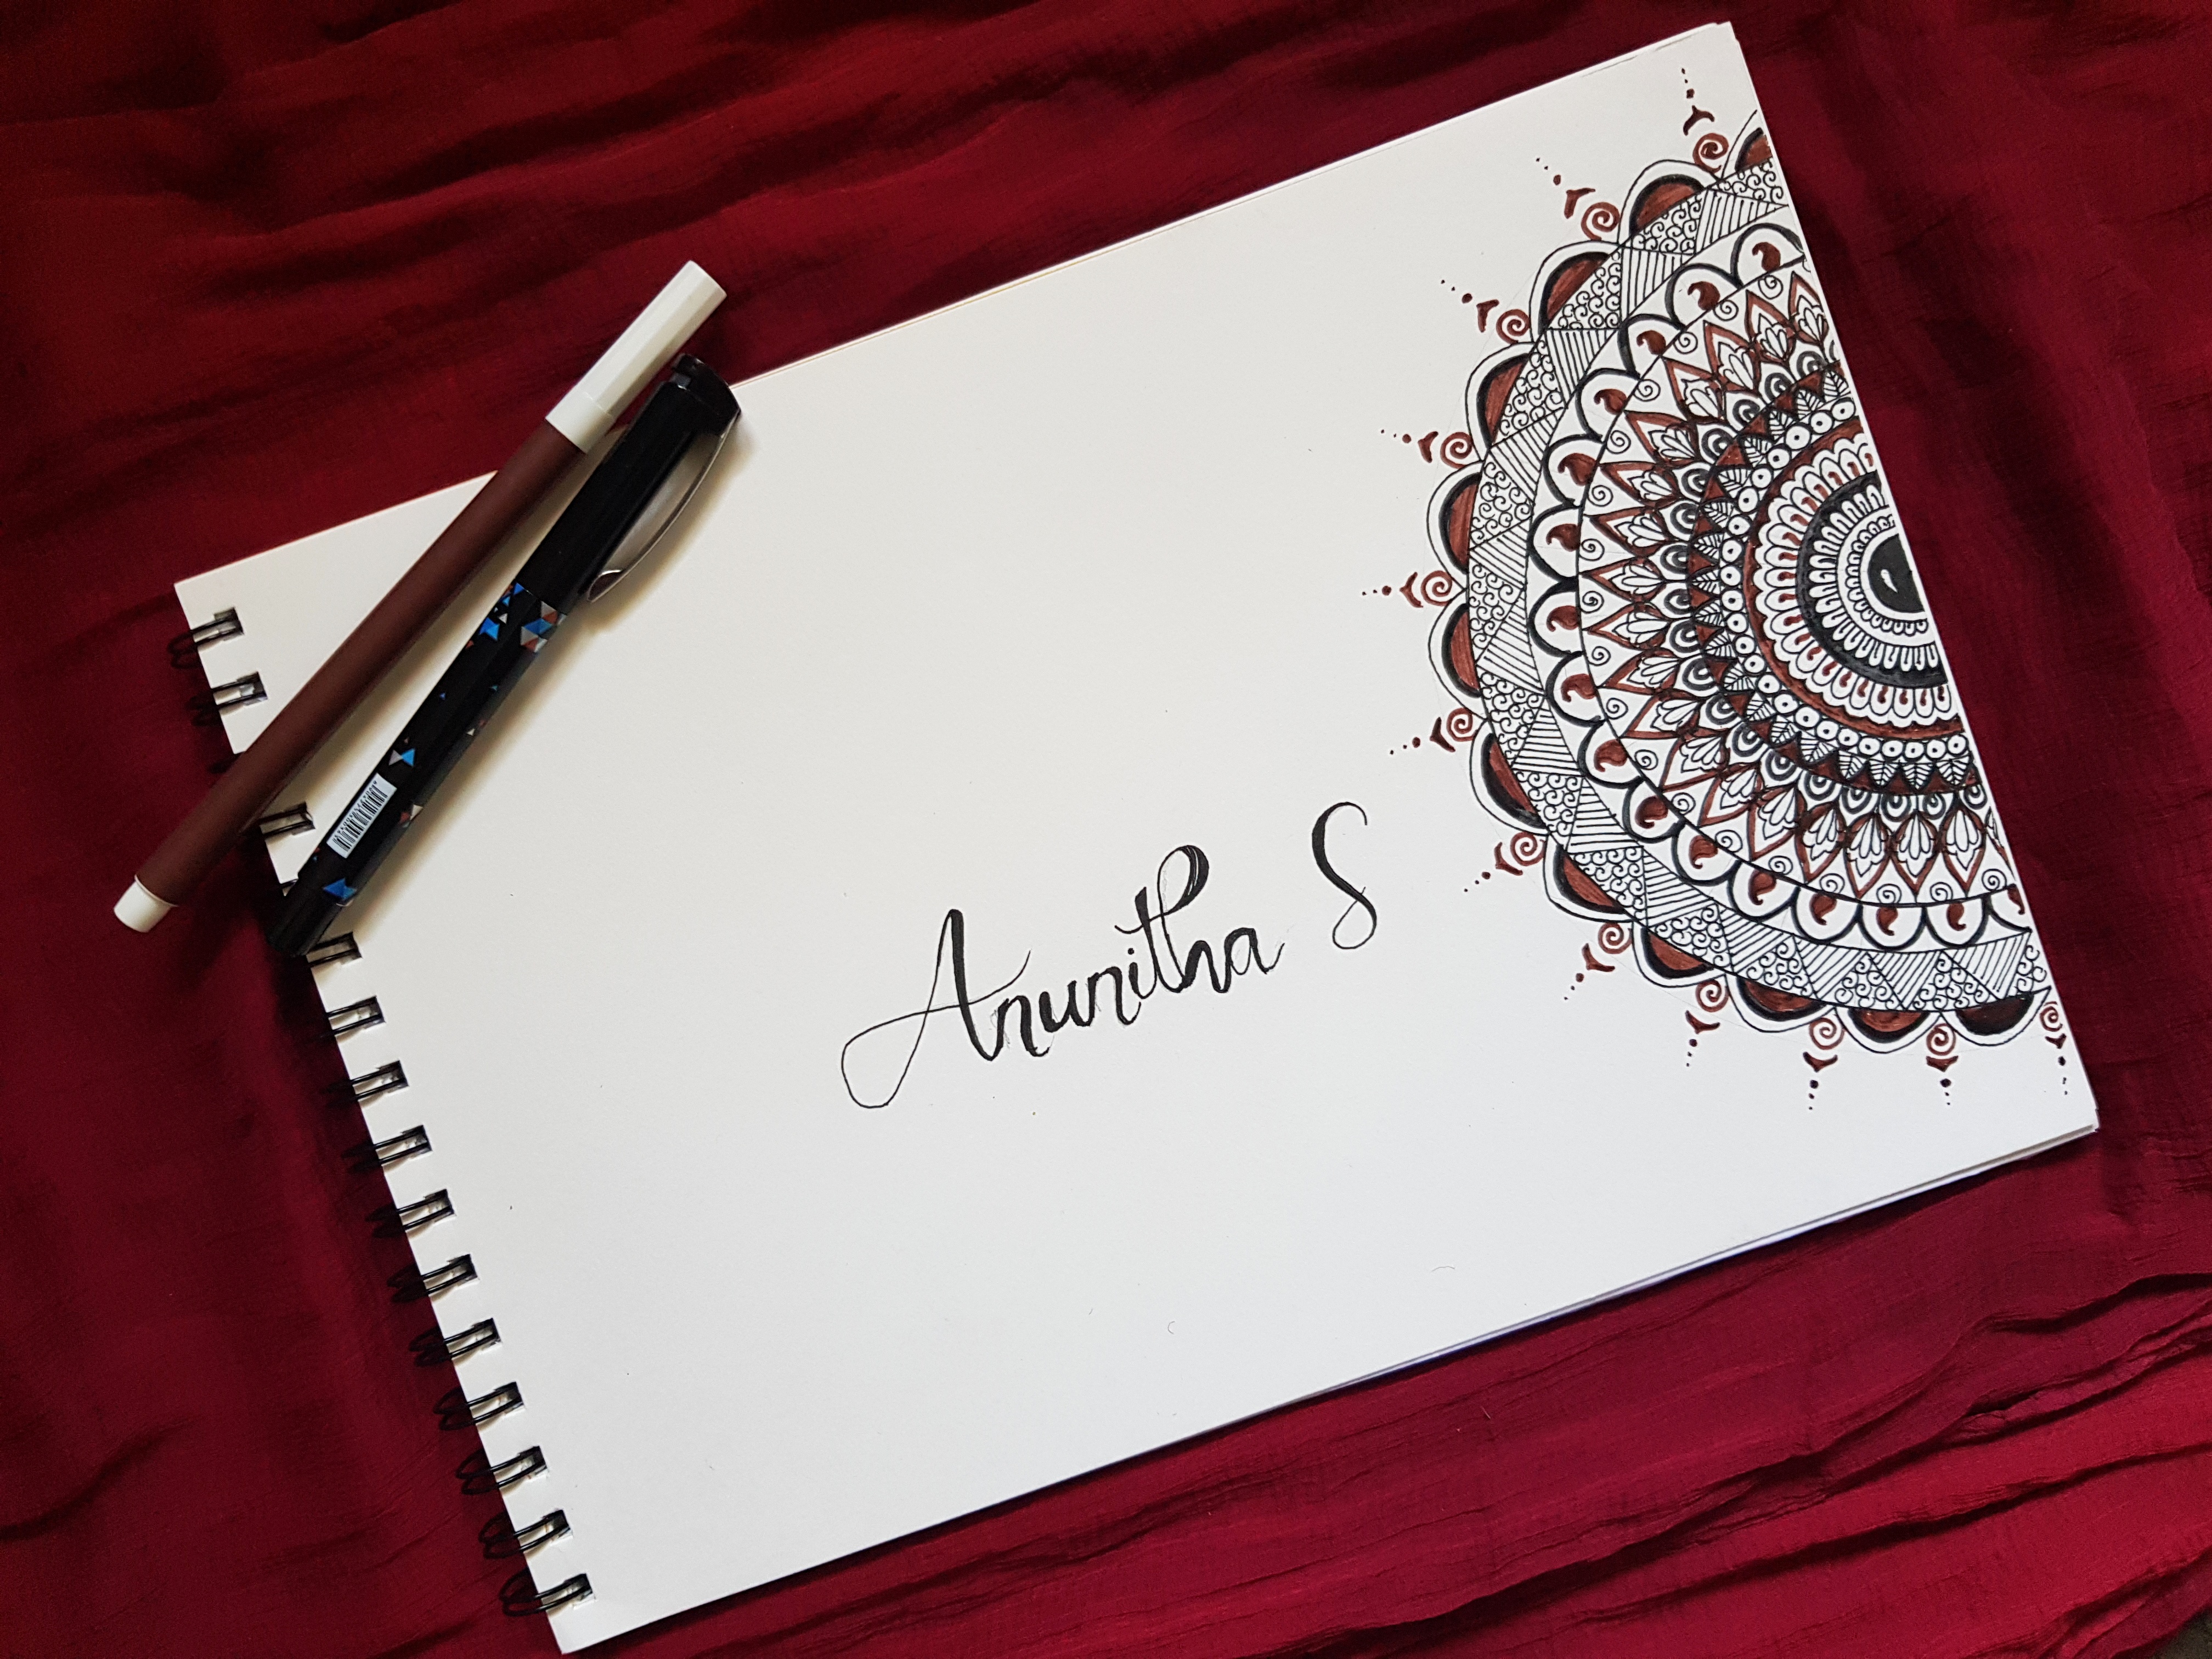 Anunitha S